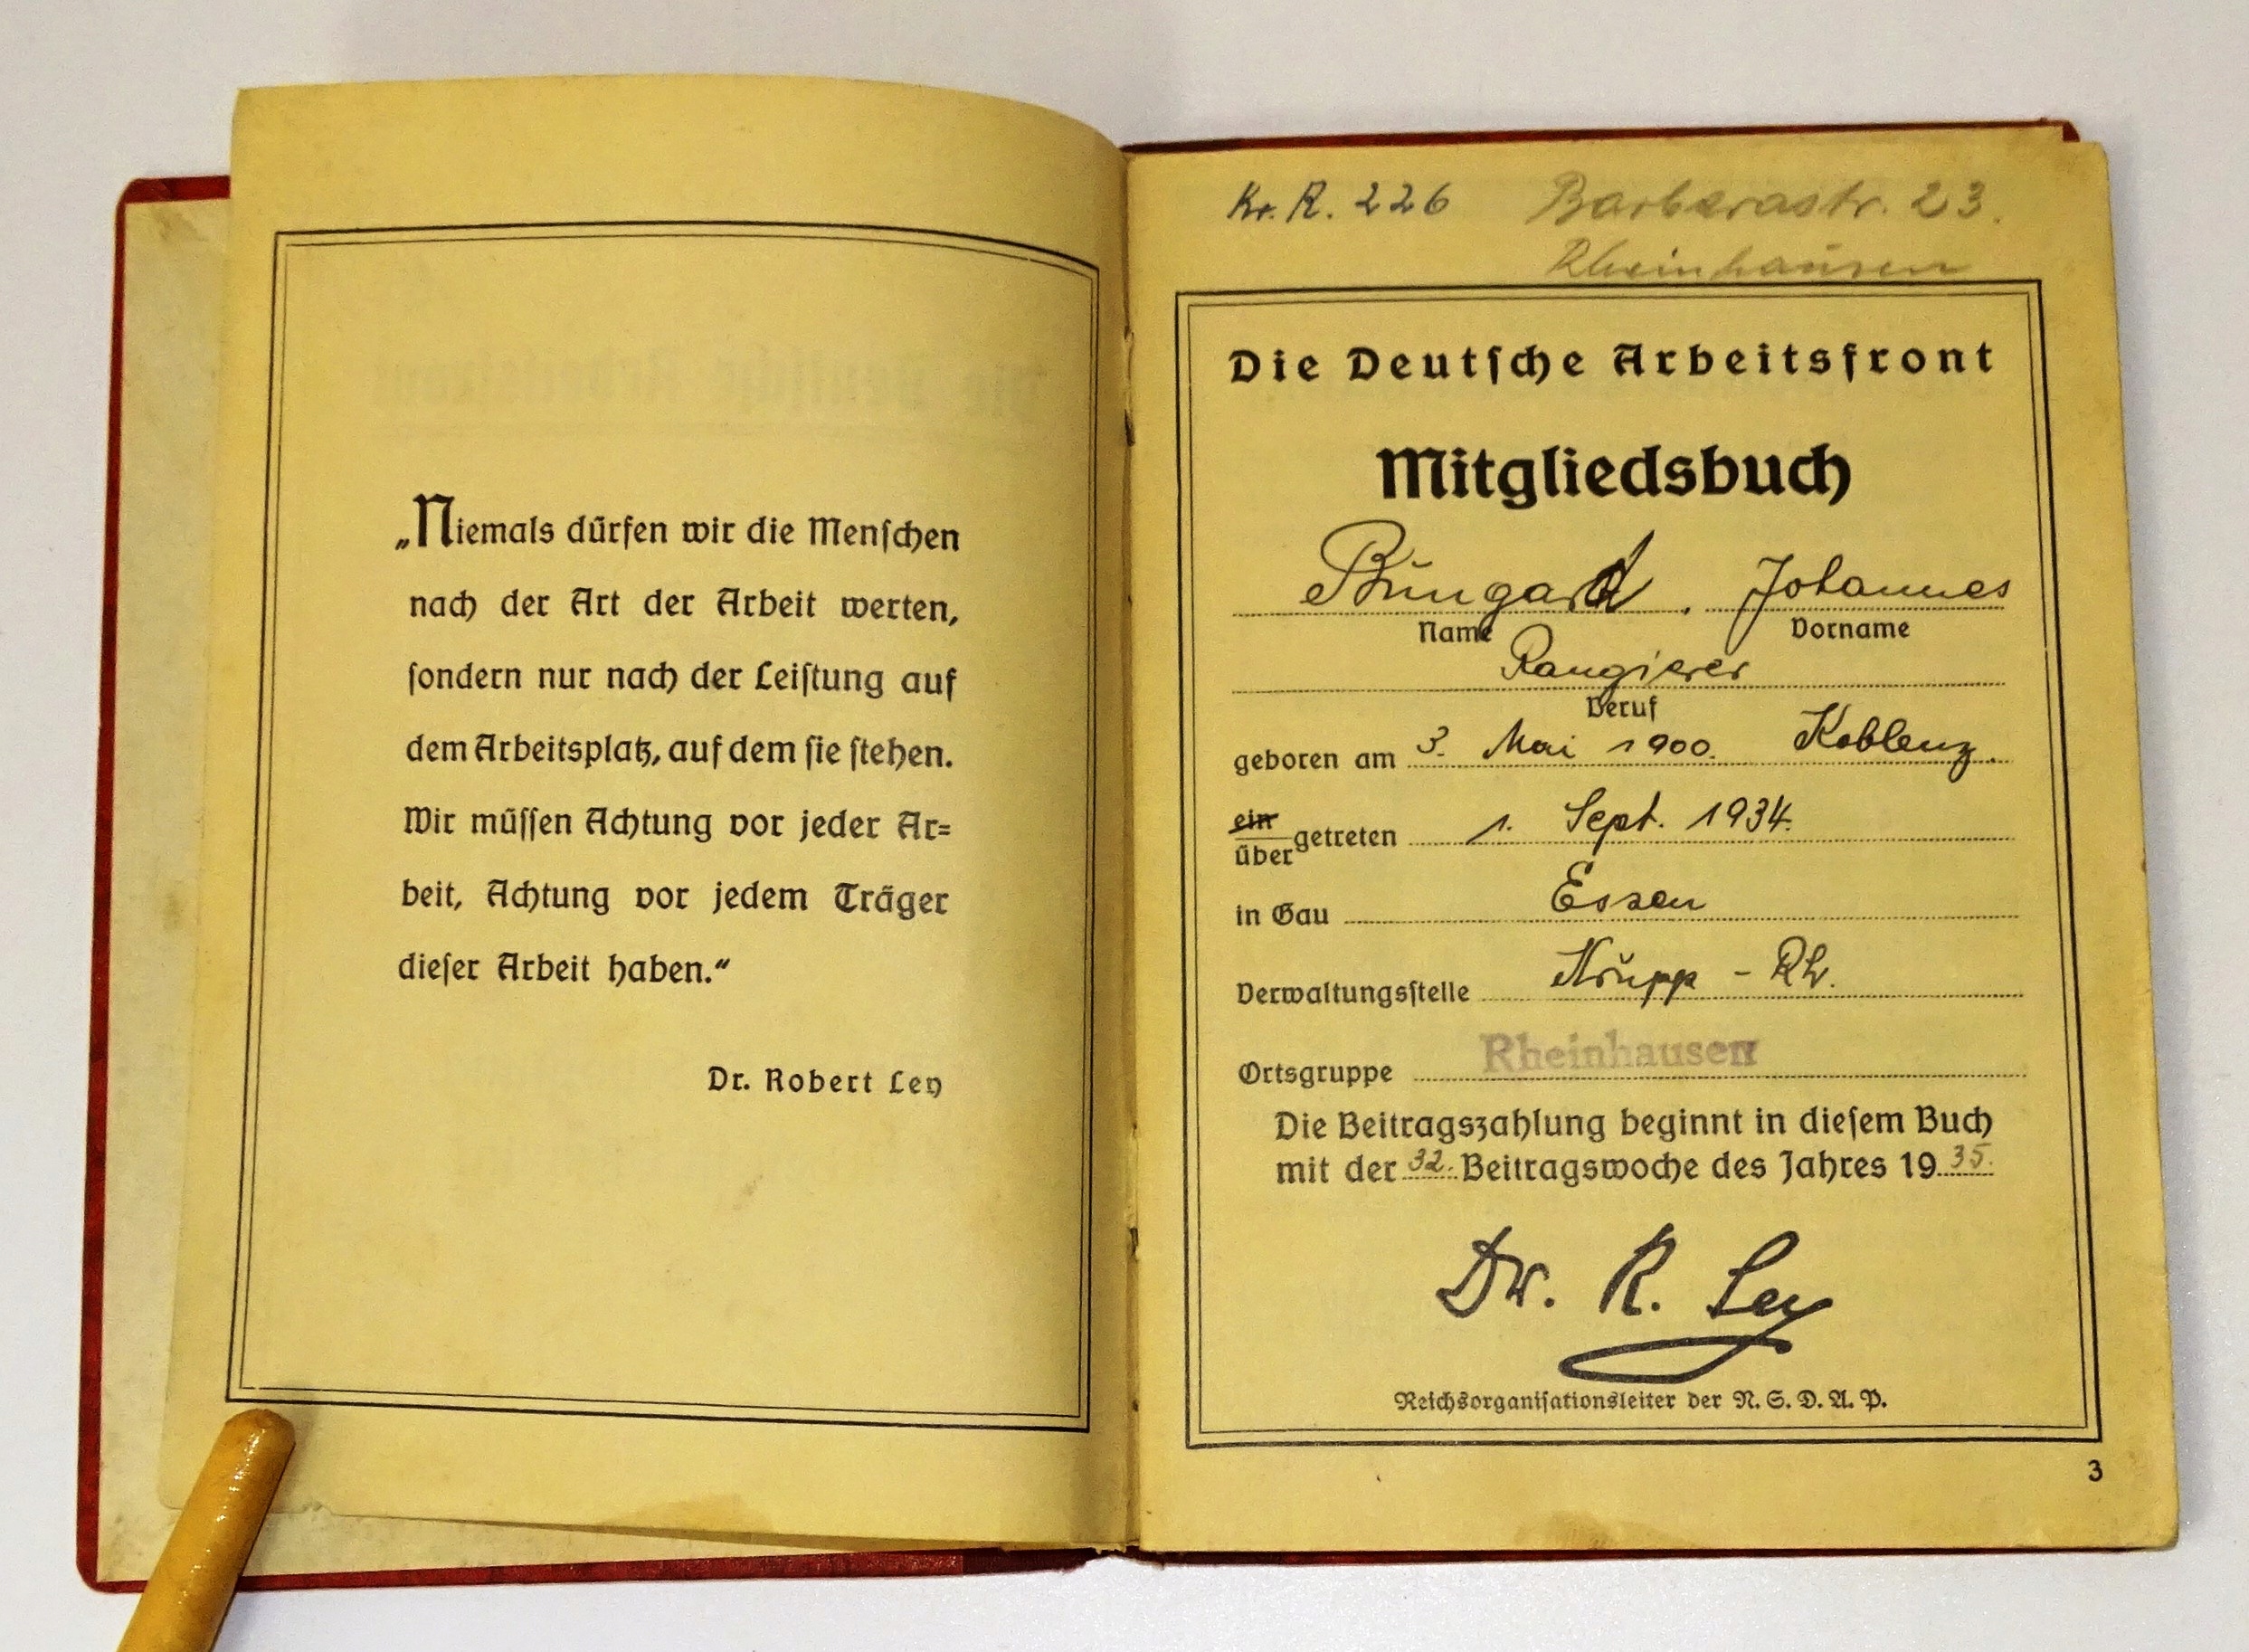 „Niemals dürfen wir die Menschen
nach der Art der Arbeit werten,
sondern nur nach der Leistung auf
dem Arbeitsplatz, auf dem sie stehen.
Wir müssen Achtung vor jeder Ar=
beit, Achtung vor jedem Träger
dieser Arbeit haben.“
Dr. Robert Ley
Kr. R. 226 Barbarastr. 23.
Rheinhausen
Die Deutsche Arbeitsfront
Mitgliedsbuch
Bungard. Johannes
Name Vorname
Rangierer
Beruf
geboren am 3. Mai 1900. Koblenz.
ein
über getreten 1. Sept. 1934.
in Gau Essen
Verwaltungsstelle Krupp - Rh.
Ortsgruppe Rheinhausen
Die Beitragszahlung beginnt in diesem Buch
mit der 32. Beitragswoche des Jahres 1935.
Dr. R. Ley
Reichsorganisationsleiter der N.S.D.A.P.
3